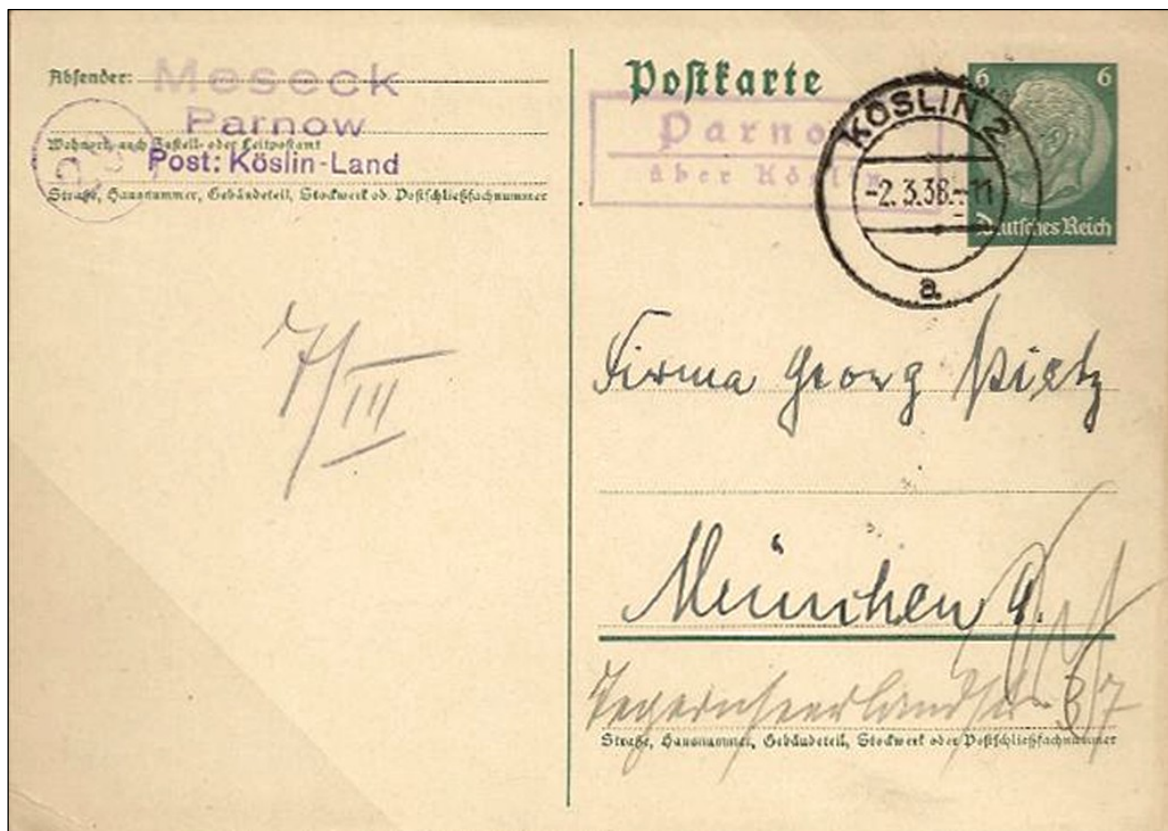 Absender:
Meseck
Parnow
Wohnort, auch Zustell- oder Leitpostamt
Post: Köslin-Land
Straße, Hausnummer, Gebäudeteil, Stockwerk od. Postschließfachnummer
Postkarte
Parnow
über Köslin
KÖSLIN 2
-2.3.38.-11
a
6 6
Deutsches Reich
7/III
Firma Georg
München 9.
Tegernseerlandstr. 37
Straße, Hausnummer, Gebäudeteil, Stockwerk oder Postschließfachnummer